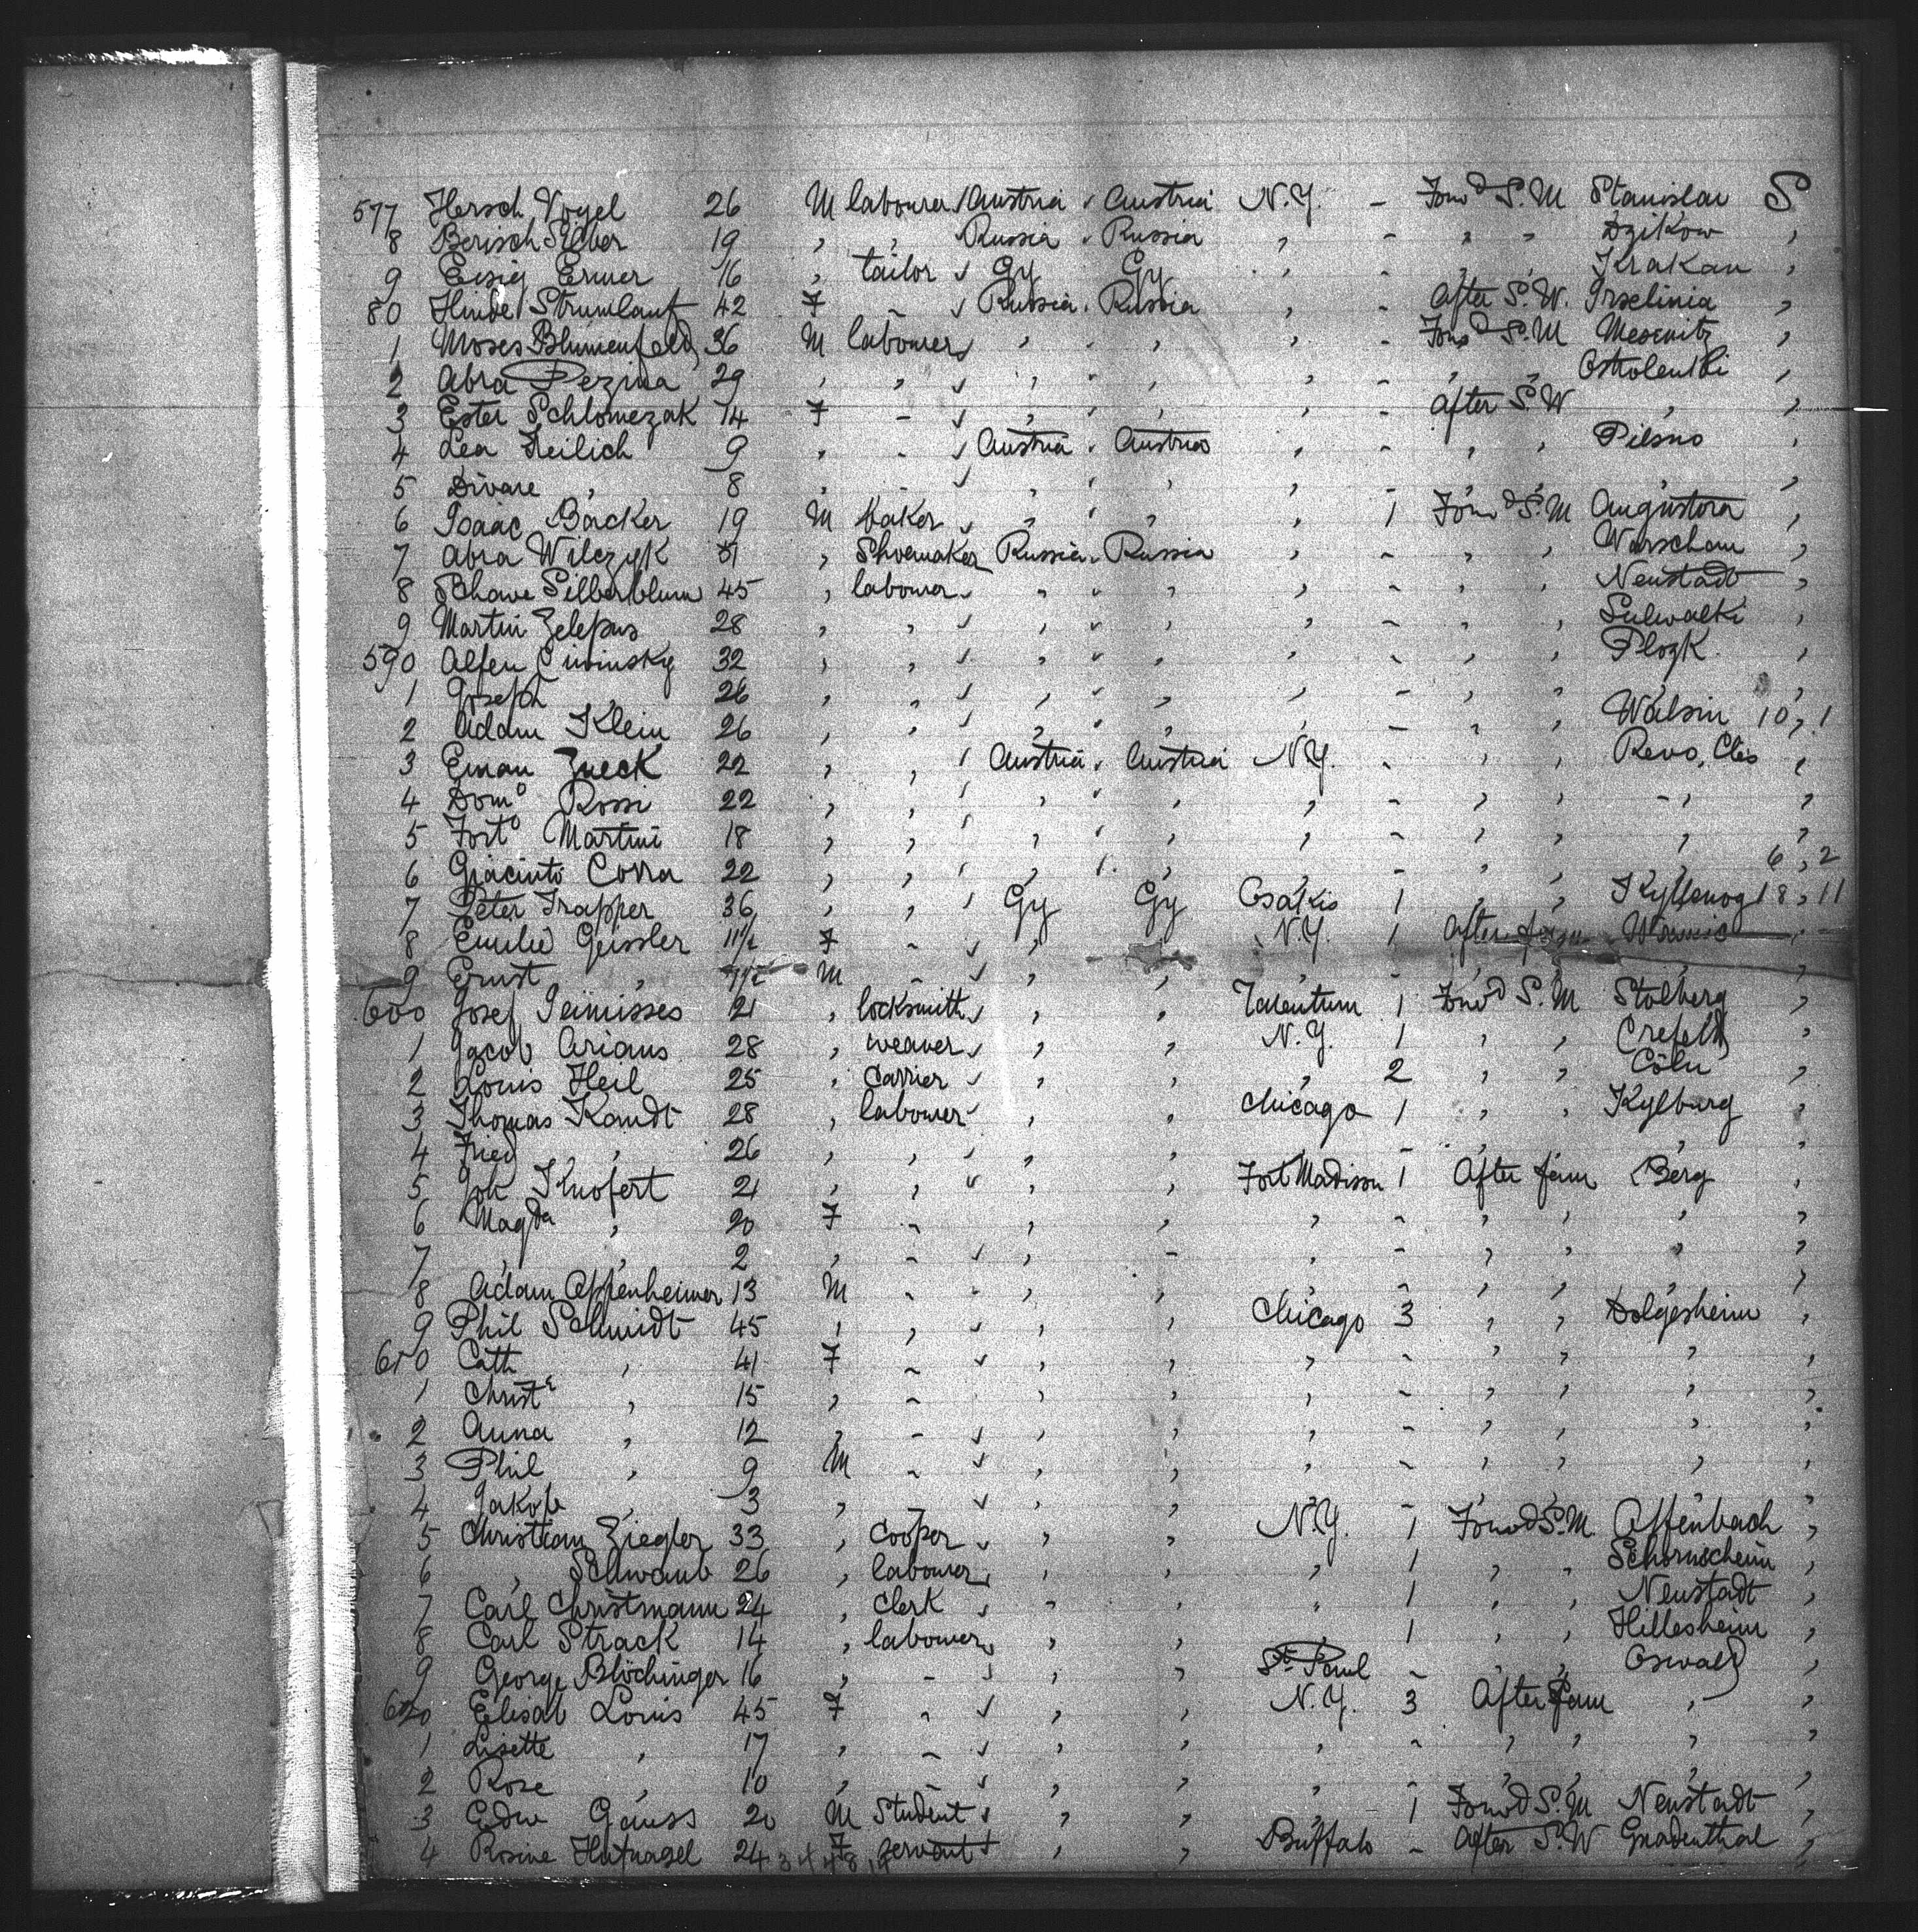 577 Hersch Vogel 26 M labourer Austria Austria N.Y. - Forw'd S.M Stanislau S
8 Berisch Silber 19 , , Russia Russia , - , , Dzikow ,
9 Eisig Ermer 16 , tailor Gy Gy , - , , Krakau ,
80 Hinde Strumlauf 42 F - Russia Russia , - After S.W. ,
1 Moses Blumenfeld 36 M labourer , , , - Forw'd S.M ,
2 Abra Pezina 29 , , , , , - , , ,
3 Ester Schlomezak 14 F - , , , - After S.W , ,
4 Lea Keilich 9 , - Austria Austria , - , , Pilsno ,
5 , 8 , - , , , - , , , ,
6 Isaac Backer 19 M baker , , , 1 Forw'd S.M Augustora ,
7 Abra Wilczyk Shoemaker Russia Russia , - , , Warschau ,
8 Schawe Silberblum 45 , labourer , , , - , , Neustadt ,
9 Martin Zelepus 28 , , , , , - , , Sulwalki ,
590 32 , , , , , - , , Plozk ,
1 Joseph , 26 , , , , , - , , , ,
2 Adam Klein 26 , , , , , - , , 10, 1
3 Eman Zueck 22 , , Austria Austria N.Y. - , , Revo, Cles ,
4 Dom° Rossi 22 , , , , , - , , - , ,
5 Fort° Martini 18 , , , , , - , , , ,
6 Giacinto Corra 22 , , , , , - , , , 6, 2
7 Peter Trapper 36 , , Gy Gy Osakis 1 , , 18, 11
8 Emilie Geissler 11½ F - , , N.Y. 1 After fam ,
9 Ernst , M - , , , - , , , ,
600 Josef 21 , locksmith , , 1 Forw'd S.M Stolberg ,
1 Jacob Arians 28 , weaver , , N.Y. 1 , , Crefeld ,
2 Louis Heil 25 , Carrier , , , 2 , , Cöln ,
3 Thomas Kandt 28 , labourer , , Chicago 1 , , Kylburg ,
4 Fried , 26 , , , , , - , , , ,
5 Joh Knofert 21 , , , , Fort Madison 1 After fam Berg ,
6 Magda , 20 F - , , , - , , , ,
7 , , 2 , - , - , - , , , ,
8 Adam Oppenheimer 13 M - , , , - , , , ,
9 Phil Schmidt 45 , , , , Chicago 3 , , Dolgesheim ,
610 Cath , 41 F - , , , - , , , ,
1 Christe , 15 , - , , , - , , , ,
2 Anna , 12 , - , , , - , , , ,
3 Phil , 9 M - , , , - , , , ,
4 Jakob , 3 , - , , , - , , , ,
5 Christian Ziegler 33 , Cooper , , N.Y. 1 Forw'd S.M. Offenbach ,
6 , Schwaub 26 , labourer , , , 1 , , Schornscheim ,
7 Carl Christmann 24 , Clerk , , , 1 , , Neustadt ,
8 Carl Strack 14 , labourer , , , 1 , , Hillesheim ,
9 George Blöchinger 16 , - , , St Paul - , , Oswald ,
620 Elisab Louis 45 F - , , N.Y. 3 After fam , ,
1 Lisette , 17 , - , , , - , , , ,
2 Rose , 10 , - , , , - , , , ,
3 Edw Gauss 20 M Student , , , 1 Forw'd S.M Neustadt ,
4 Rosine Hutnagel 24 F servant , , Buffalo - After S.W Gnadenthal ,